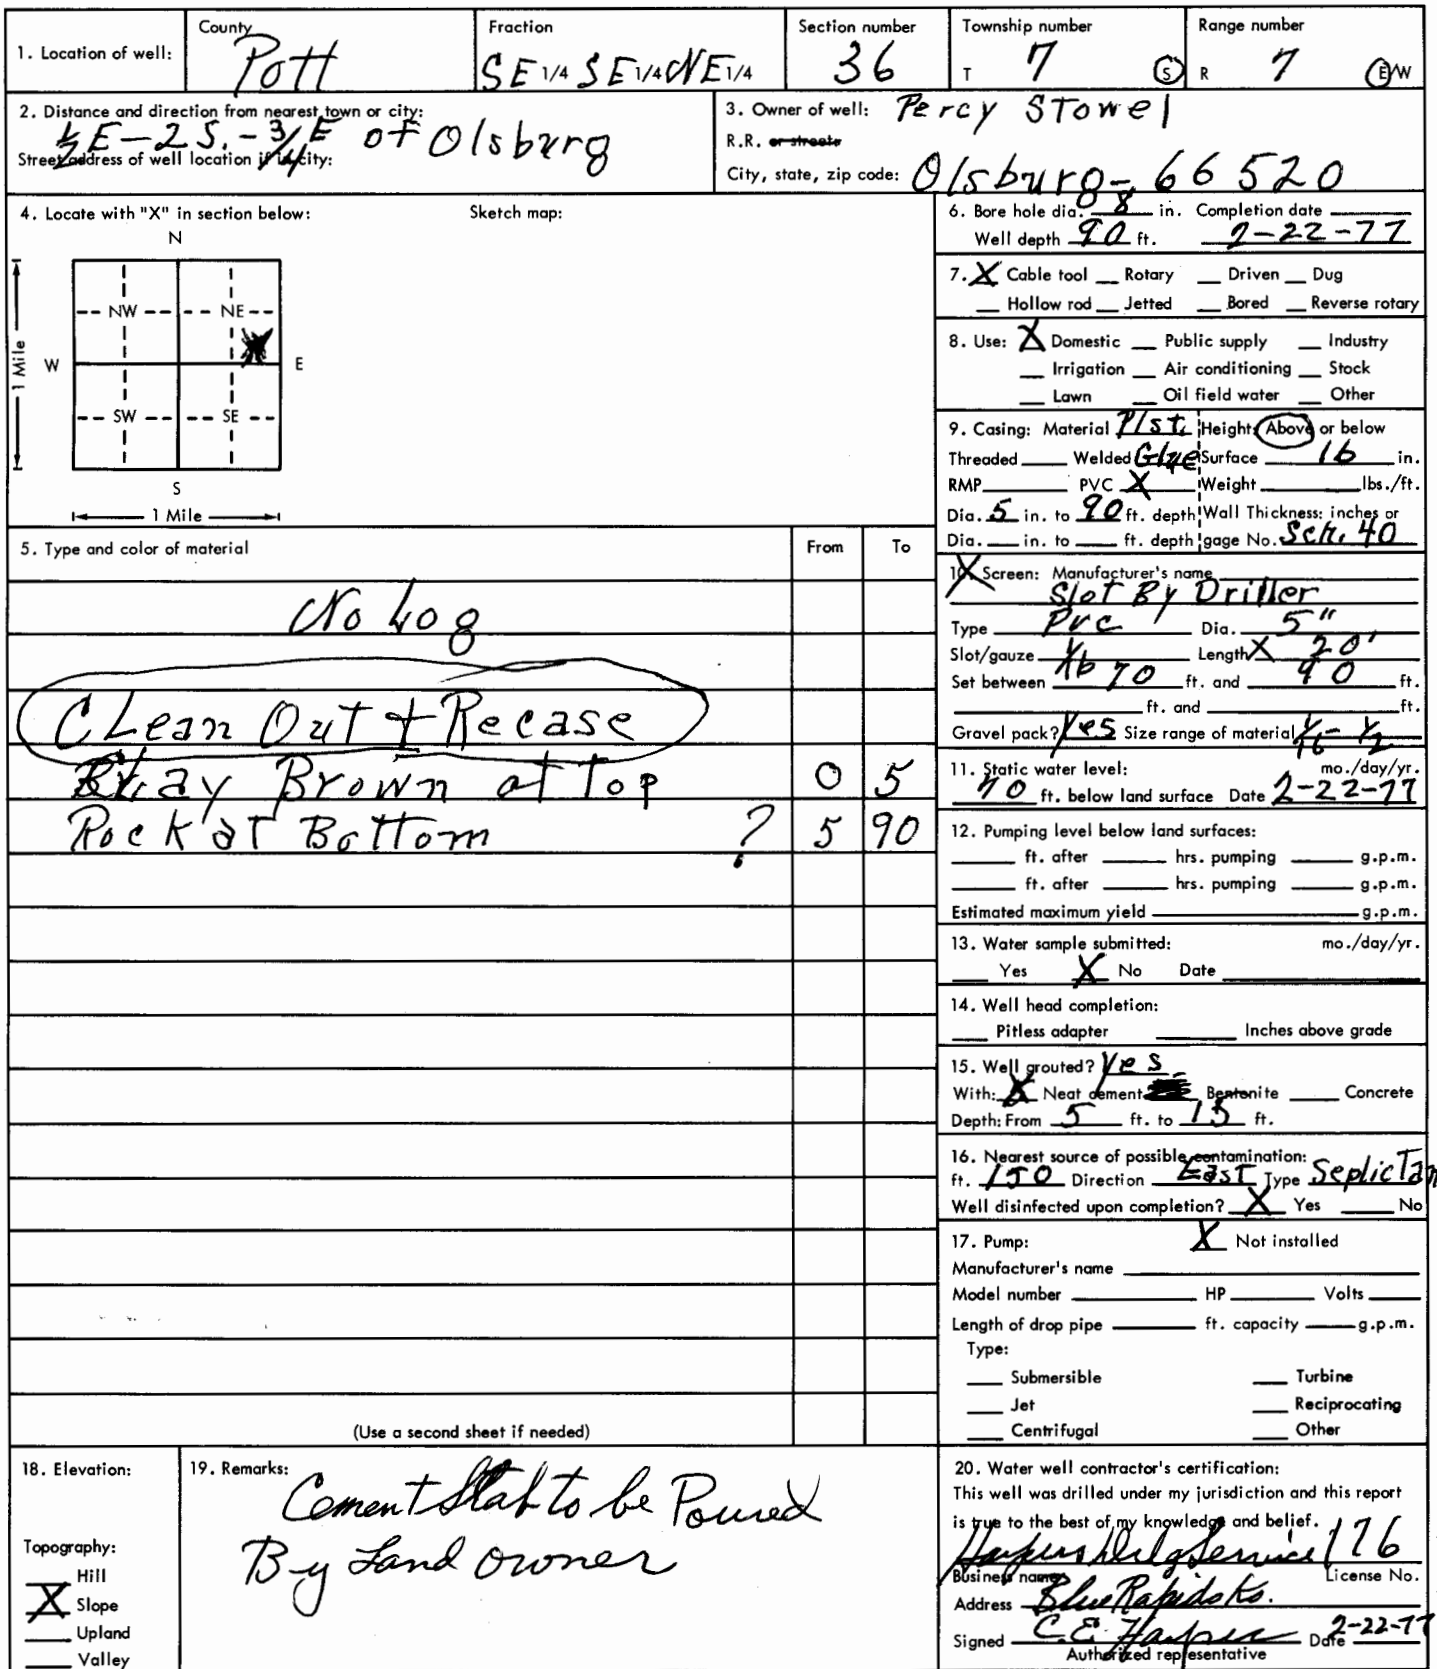 1. Location of well: County Pott Fraction SE 1/4 SE 1/4 NE 1/4 Section number 36 Township number T 7 S Range number R 7 E/W
2. Distance and direction from nearest town or city: 1/2 E-2 S.-3/4 E of Olsburg
Street address of well location if in city:
3. Owner of well: Percy Stowel
R.R. or street:
City, state, zip code: Olsburg- 66520
4. Locate with "X" in section below: Sketch map:
N
NW NE
W E
SW SE
S
1 Mile
1 Mile
6. Bore hole dia. 8 in. Completion date
Well depth 90 ft. 2-22-77
7. X Cable tool Rotary Driven Dug
Hollow rod Jetted Bored Reverse rotary
8. Use: X Domestic Public supply Industry
Irrigation Air conditioning Stock
Lawn Oil field water Other
9. Casing: Material Plst. Height: Above or below
Threaded Welded Glue Surface 16 in.
RMP PVC X Weight lbs./ft.
Dia. 5 in. to 90 ft. depth Wall Thickness: inches or
Dia. in. to ft. depth gage No. Sch. 40
5. Type and color of material From To
No Log
Clean Out + Recase
Clay Brown at Top 0 5
Rock at Bottom ? 5 90
(Use a second sheet if needed)
10. X Screen: Manufacturer's name
Slot By Driller
Type Pvc Dia. 5"
Slot/gauze 1/16 Length X 20'
Set between 70 ft. and 90 ft.
ft. and ft.
Gravel pack? Yes Size range of material 1/16 - 1/2
11. Static water level: mo./day/yr.
70 ft. below land surface Date 2-22-77
12. Pumping level below land surfaces:
ft. after hrs. pumping g.p.m.
ft. after hrs. pumping g.p.m.
Estimated maximum yield g.p.m.
13. Water sample submitted: mo./day/yr.
Yes X No Date
14. Well head completion:
Pitless adapter Inches above grade
15. Well grouted? Yes
With: X Neat cement Bentonite Concrete
Depth: From 5 ft. to 15 ft.
16. Nearest source of possible contamination:
ft. 150 Direction East Type Septic Tan
Well disinfected upon completion? X Yes No
17. Pump: X Not installed
Manufacturer's name
Model number HP Volts
Length of drop pipe ft. capacity g.p.m.
Type:
Submersible Turbine
Jet Reciprocating
Centrifugal Other
18. Elevation:
Topography:
Hill
X Slope
Upland
Valley
19. Remarks: Cement Slab to be Poured
By Land owner
20. Water well contractor's certification:
This well was drilled under my jurisdiction and this report
is true to the best of my knowledge and belief.
Harpers Drlg Service 176
Business name License No.
Address Blue Rapids Ks.
Signed C.E. Harper Date 2-22-77
Authorized representative